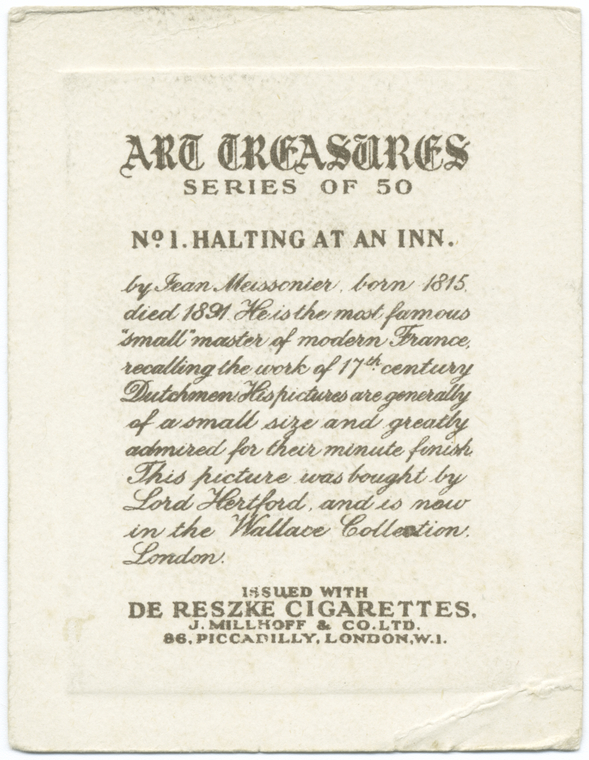 ART TREASURES
SERIES OF 50
Nº 1. HALTING AT AN INN.
by Jean Meissonier, born 1815,
died 1891. He is the most famous
"small" master of modern France,
recalling the work of 17th century
Dutchmen. His pictures are generally
of a small size and greatly
admired for their minute finish.
This picture was bought by
Lord Hertford, and is now
in the Wallace Collection.
London.
ISSUED WITH
DE RESZKE CIGARETTES.
J. MILLHOFF & CO. LTD.
86, PICCADILLY, LONDON, W.1.